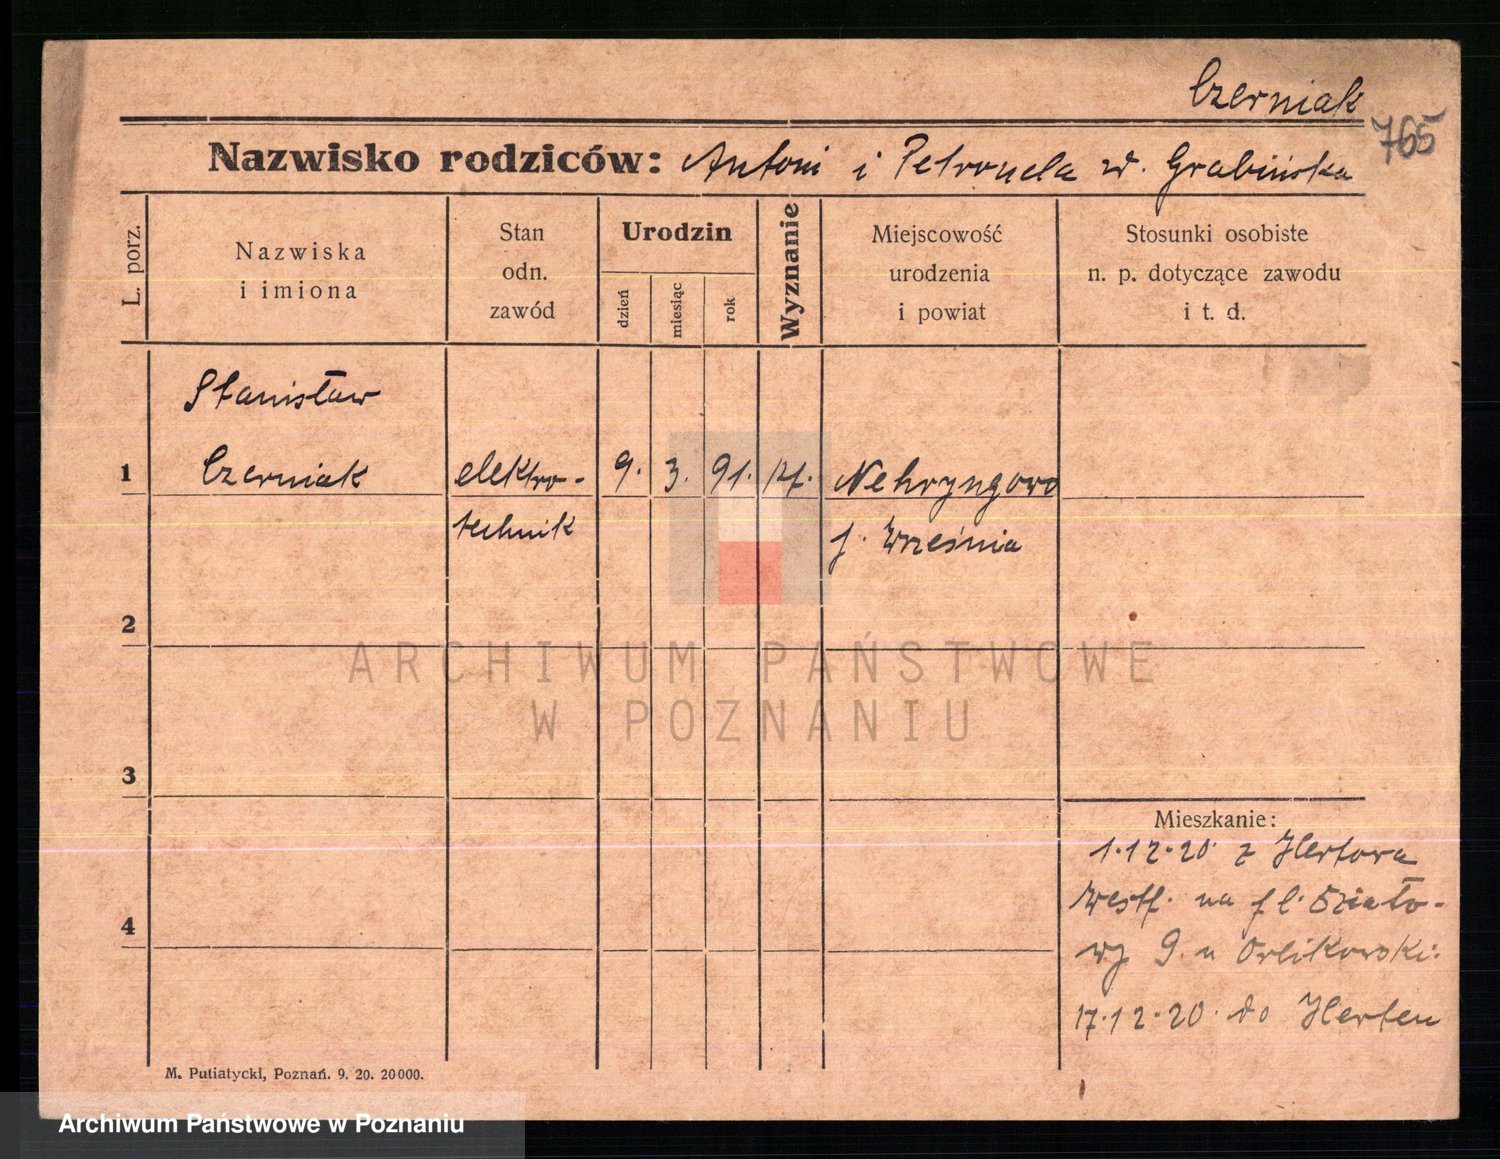 Czerniak
765
Nazwisko rodziców: Antoni i Petronela w. Grabińska
L. porz.
Nazwiska
i imiona
Stan
odn.
zawód
Urodzin
dzień
miesiąc
rok
Wyznanie
Miejscowość
urodzenia
i powiat
Stosunki osobiste
n. p. dotyczące zawodu
i t. d.
Stanisław
1 Czerniak elektro- 9. 3. 91. kt. Nehryngowo
technik p. Września
2
ARCHIWUM PAŃSTWOWE
W POZNANIU
3
Mieszkanie:
1.12.20 z Hertova
Westf. na pl. Działo-
4
wy 9. u Orlikowski:
17.12.20. do Herten
M. Putiatycki, Poznań. 9. 20. 20000.
Archiwum Państwowe w Poznaniu